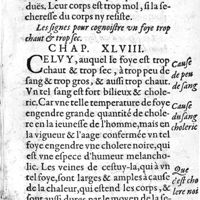 dües. Leur corps est trop mol, si la se-
cheresse du corps ny resiste.
Les signes pour cognoistre vn foye trop
chaut & trop sec.
CHAP. XLVIII.
CELVY, auquel le foye est trop
chaut & trop sec, à trop peu de
sang & trop gros, & aussi trop chaut.
Vn tel sang est fort bilieux & chole-
ric. Car vne telle temperature de foye
engendre grande quantité de chole-
re en la ieunesse de l'homme, mais en
la vigueur & l'aage confermée vn tel
foye engendre vne cholere noire, qui
est vne espece d'humeur melancho-
lic. Les veines de cestuy-la, qui à vn
tel foye, sont larges & amples à cause
de la chaleur, qui estend les corps, &
sont aussi dures par le moyen de la se-
Cause
de peu
de sang
Cause
du sang
choleric
Que
c'est cho
lere noi